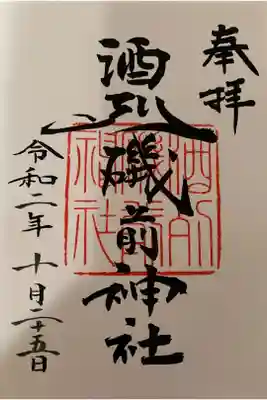 奉拝
酒列磯前神社
酒列
磯前
神社
令和二年十月二十五日